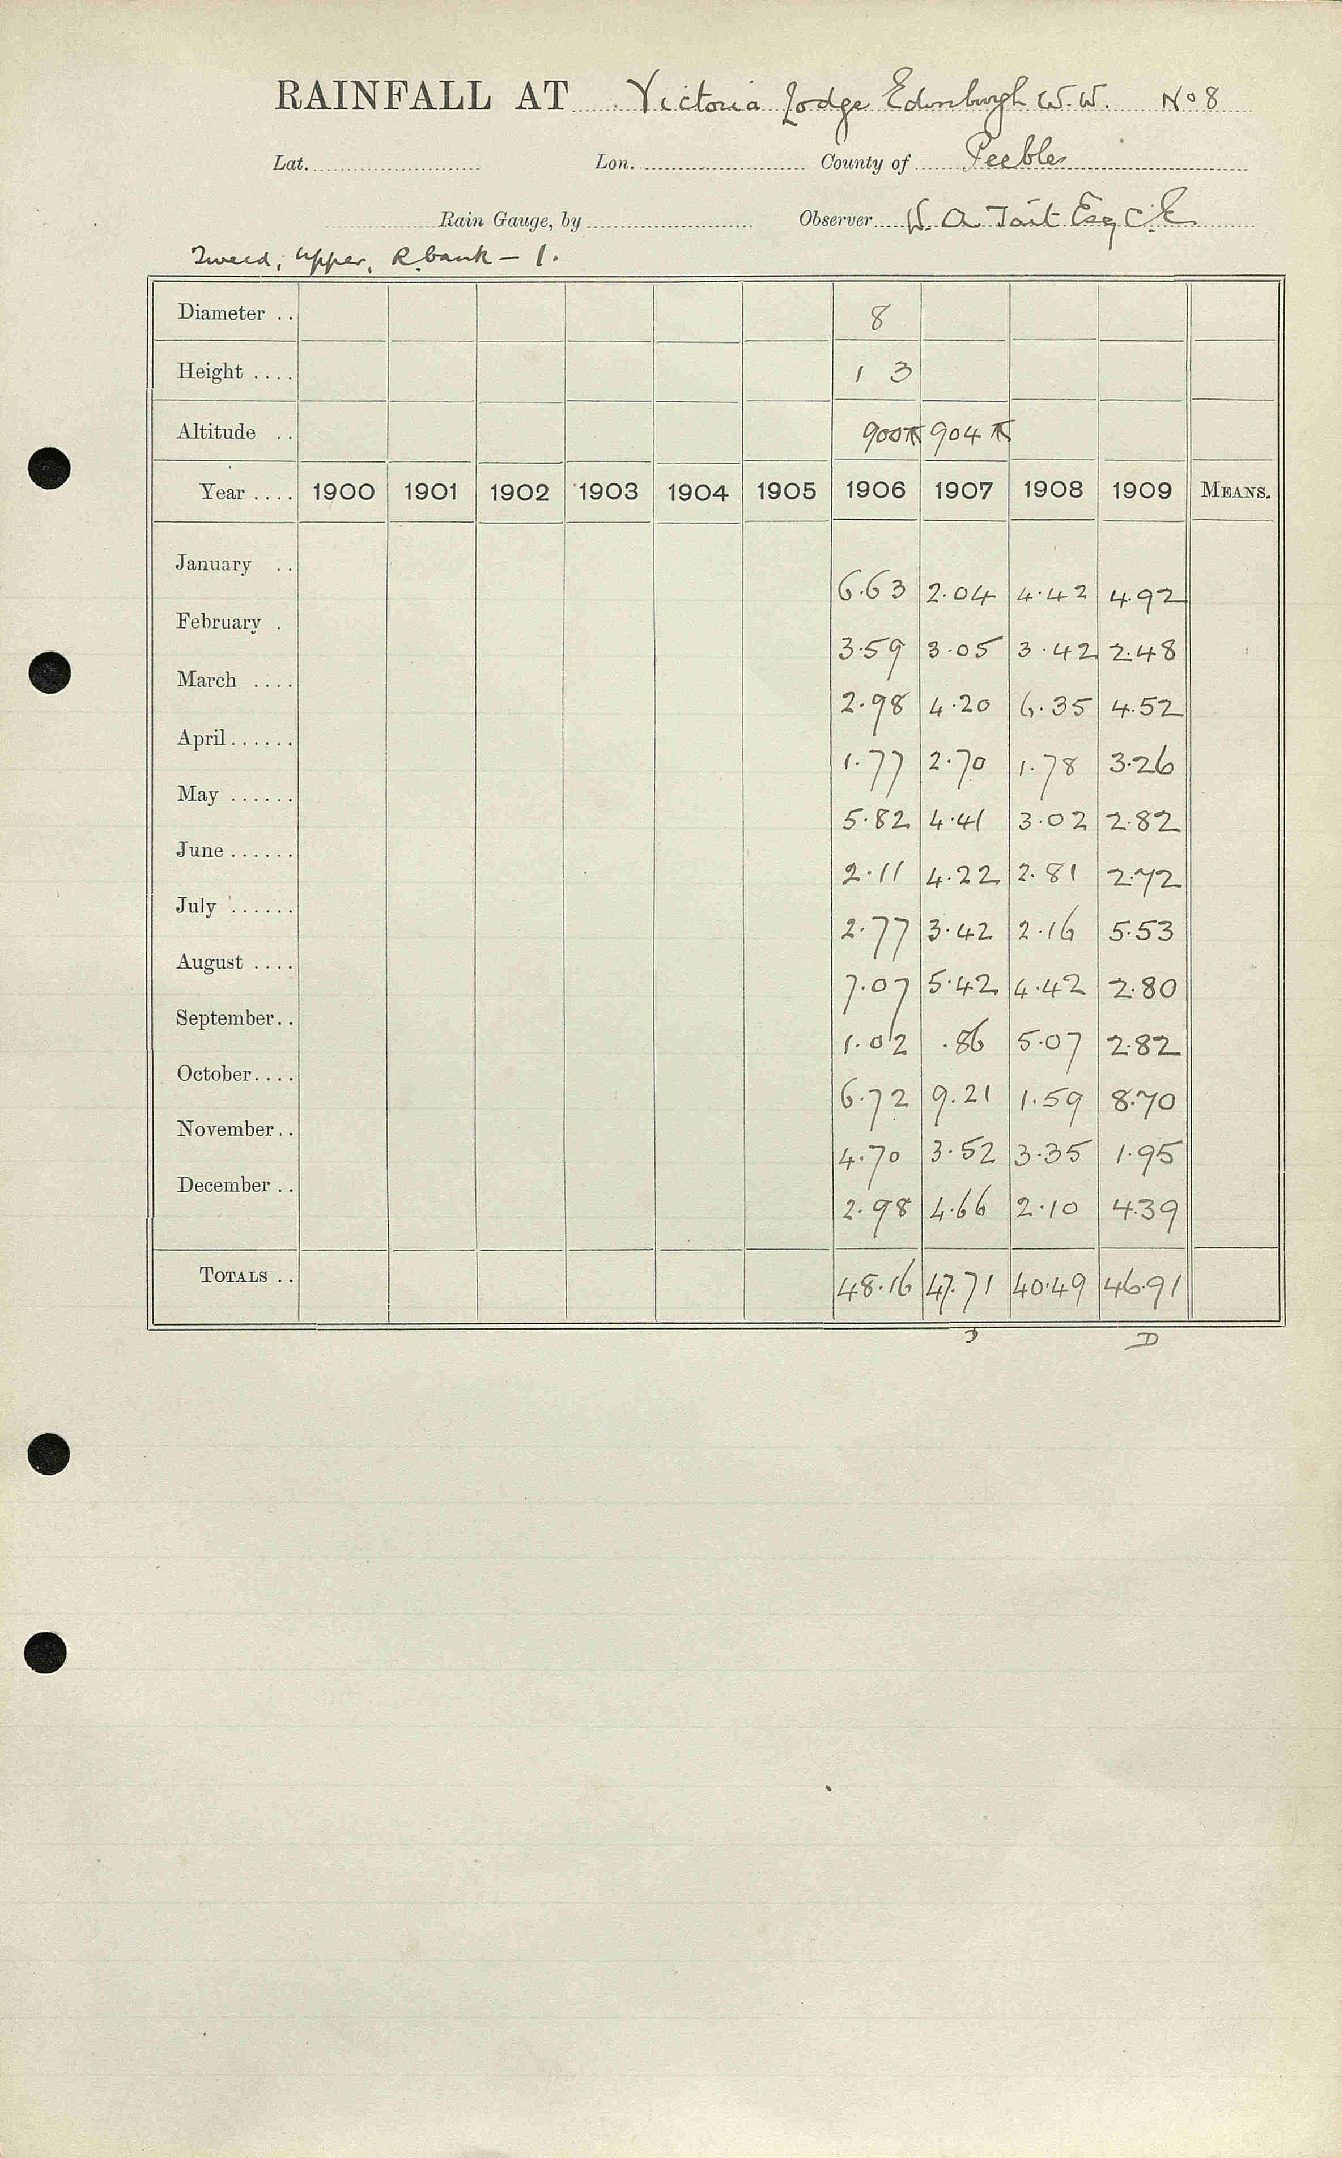 RAINFALL AT Victoria Lodge Edinburgh W.W. No 8
Lat. Lon. County of Peebles
Rain Gauge, by Observer W. A Tait Esq C.E
Tweed, Upper, R. bank - 1.
Diameter .. 8
Height .... 1 3
Altitude .. 900 904
Year .... 1900 1901 1902 1903 1904 1905 1906 1907 1908 1909 MEANS.
January .. 6.63 2.04 4.42 4.92
February . 3.59 3.05 3.42 2.48
March .... 2.98 4.20 6.35 4.52
April ...... 1.77 2.70 1.78 3.26
May ...... 5.82 4.41 3.02 2.82
June ...... 2.11 4.22 2.81 2.72
July ...... 2.77 3.42 2.16 5.53
August .... 7.07 5.42 4.42 2.80
September.. 1.02 .86 5.07 2.82
October.... 6.72 9.21 1.59 8.70
November.. 4.70 3.52 3.35 1.95
December .. 2.98 4.66 2.10 4.39
TOTALS .. 48.16 47.71 40.49 46.91
D